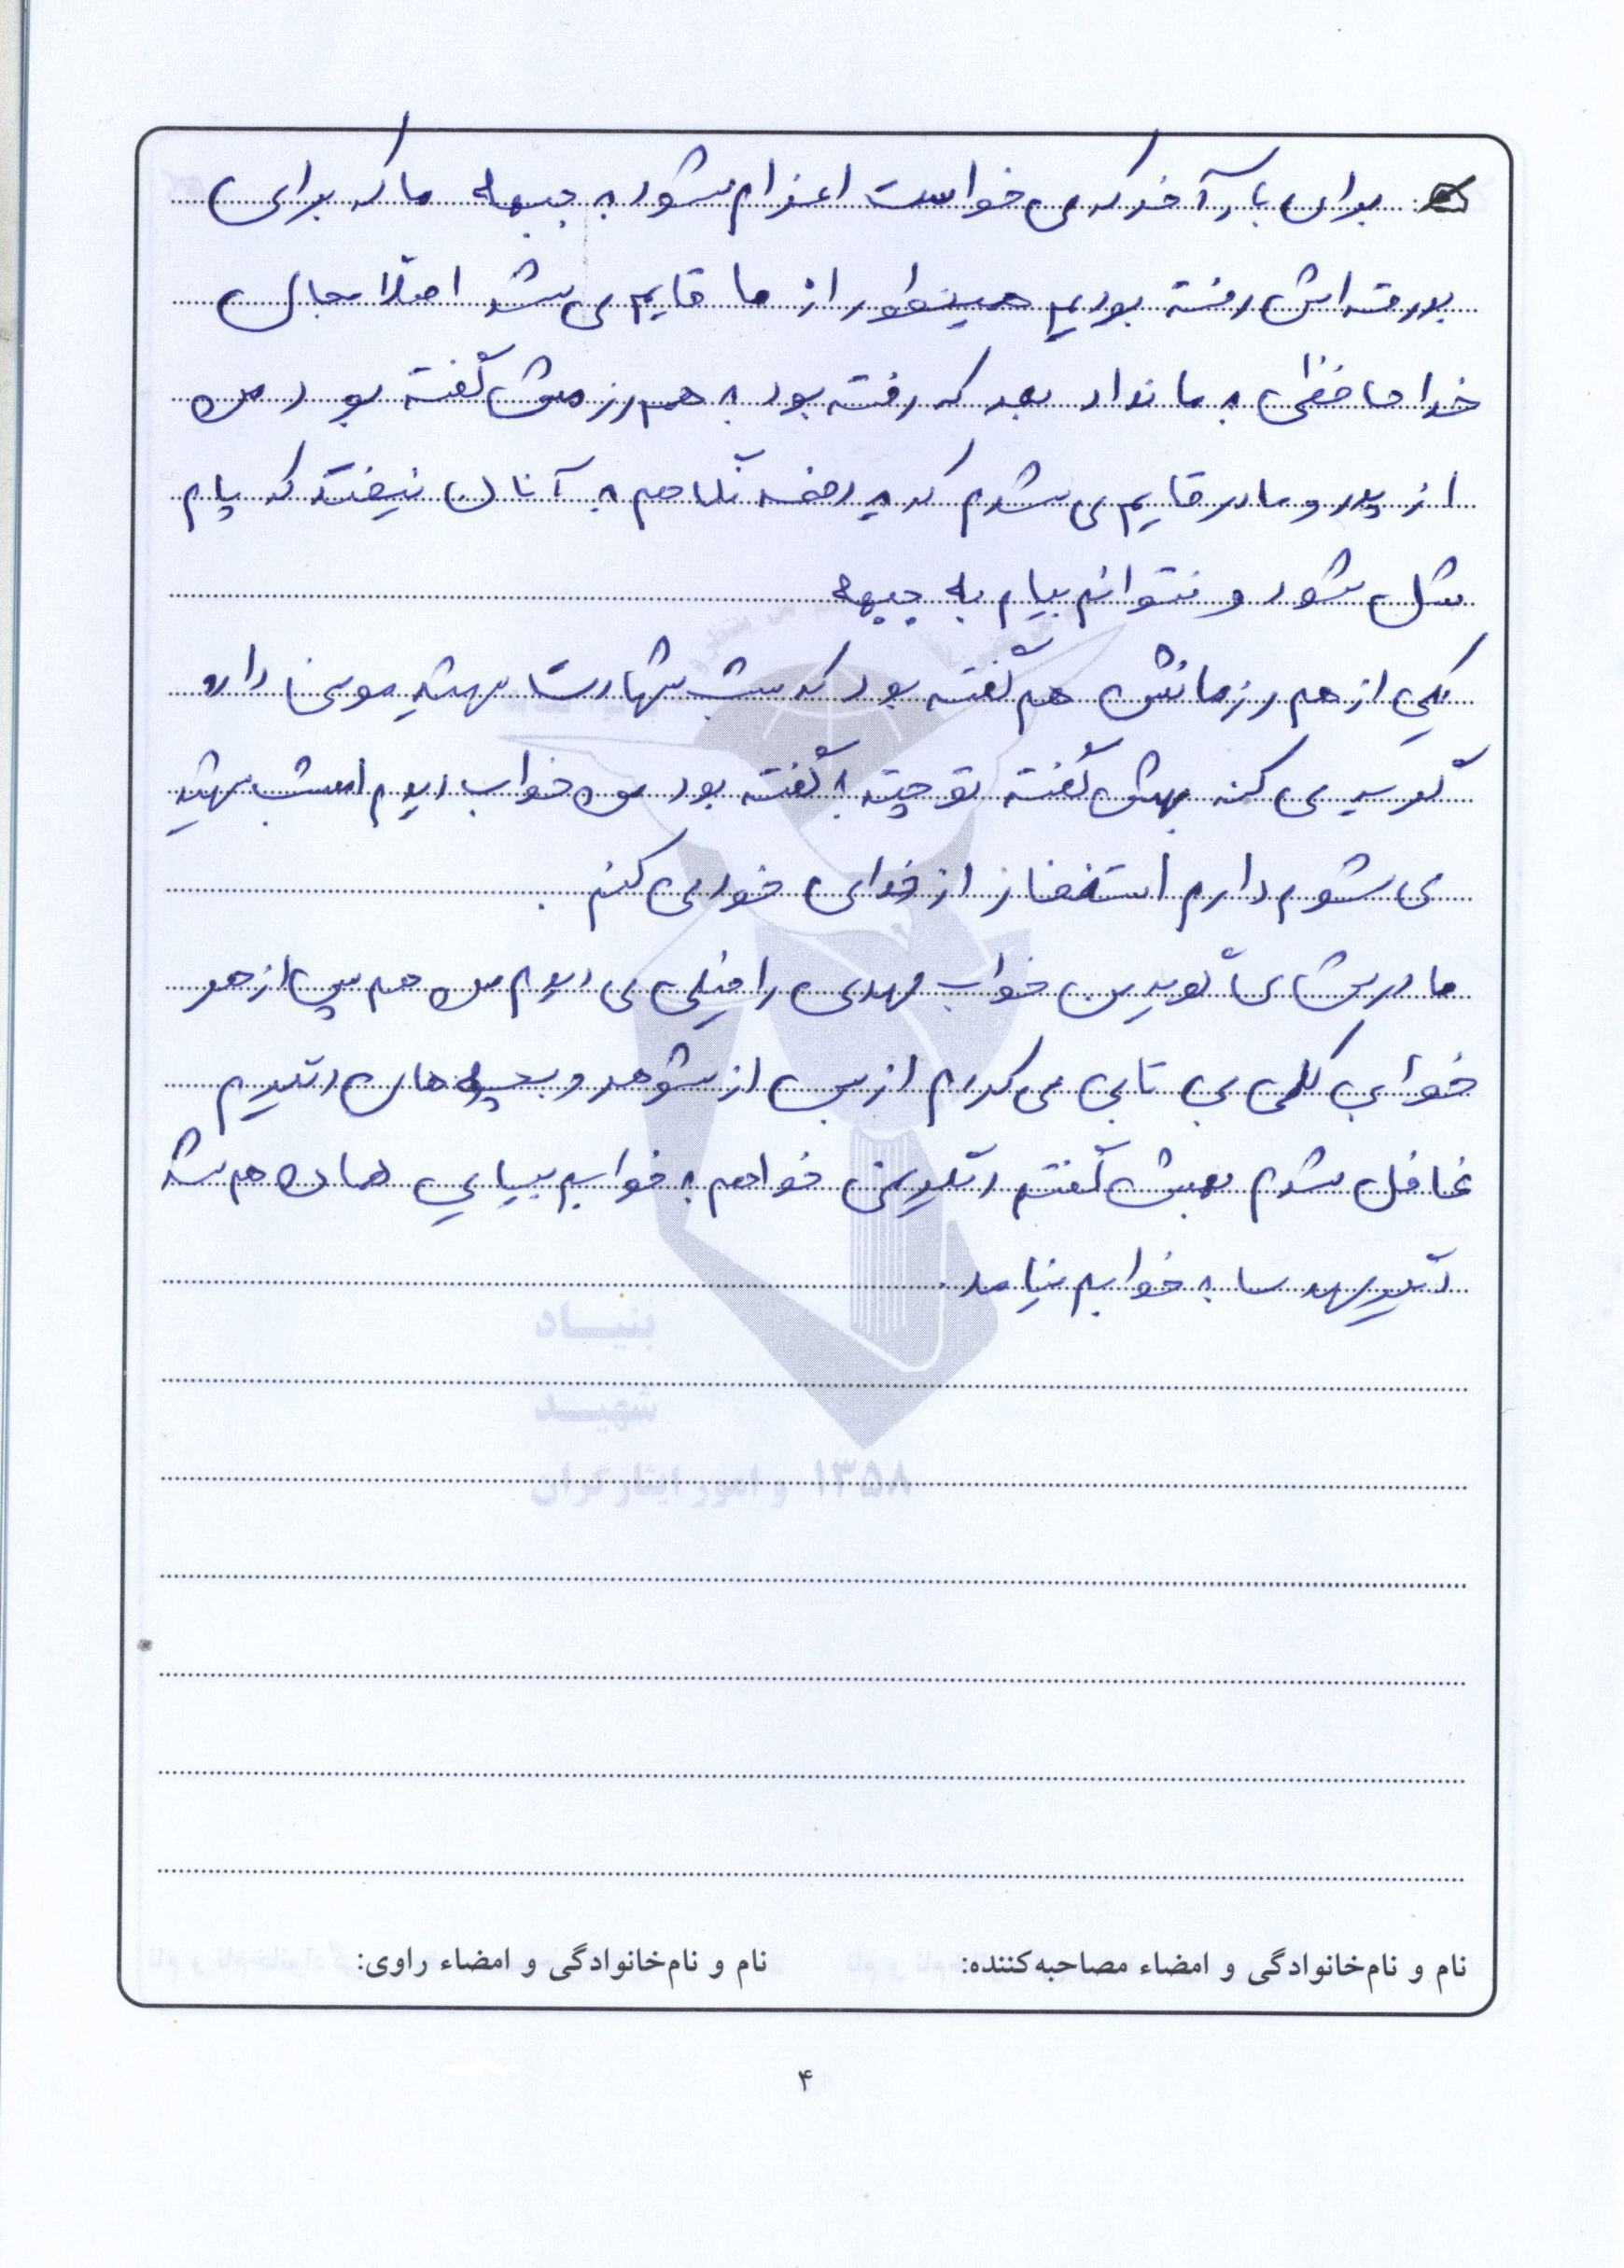 برای بار آخر که می خواست اعزام شود به جبهه ما که برای
بدرقه اش رفته بودیم همینطور از ما قایم می شد اصلا مجال
خدا حافظی به ما نداد بعد که رفته بود به همرزمش گفته بود من
از پدر و مادر قایم می شدم که یه دفعه نگاهم به آنان نیفتد که پام
شل شود و نتوانم بیام به جبهه
یکی از هم رزمانش هم گفته بود که شب شهادت شهید موسی داره
گریه می کنه بهش گفته تو چته گفته بود من خواب دیدم امشب شهید
می شوم دارم استغفار از خدای خود می کنم .
مادر خواب مهدی را خیلی می دیدم من هم پس از هر
خوابی کلی بی تابی می کردم از بس از شوهر و بچه های دیگرم
غافل شدم بهش گفتم دیگر نمی خواهم به خوابم بیایی همان هم شد
دیگر به خوابم نیامد.
بنیاد
شهید
و امور ایثارگران ۱۳۵۸
نام و نام‌خانوادگی و امضاء مصاحبه‌کننده: نام و نام‌خانوادگی و امضاء راوی:
۴